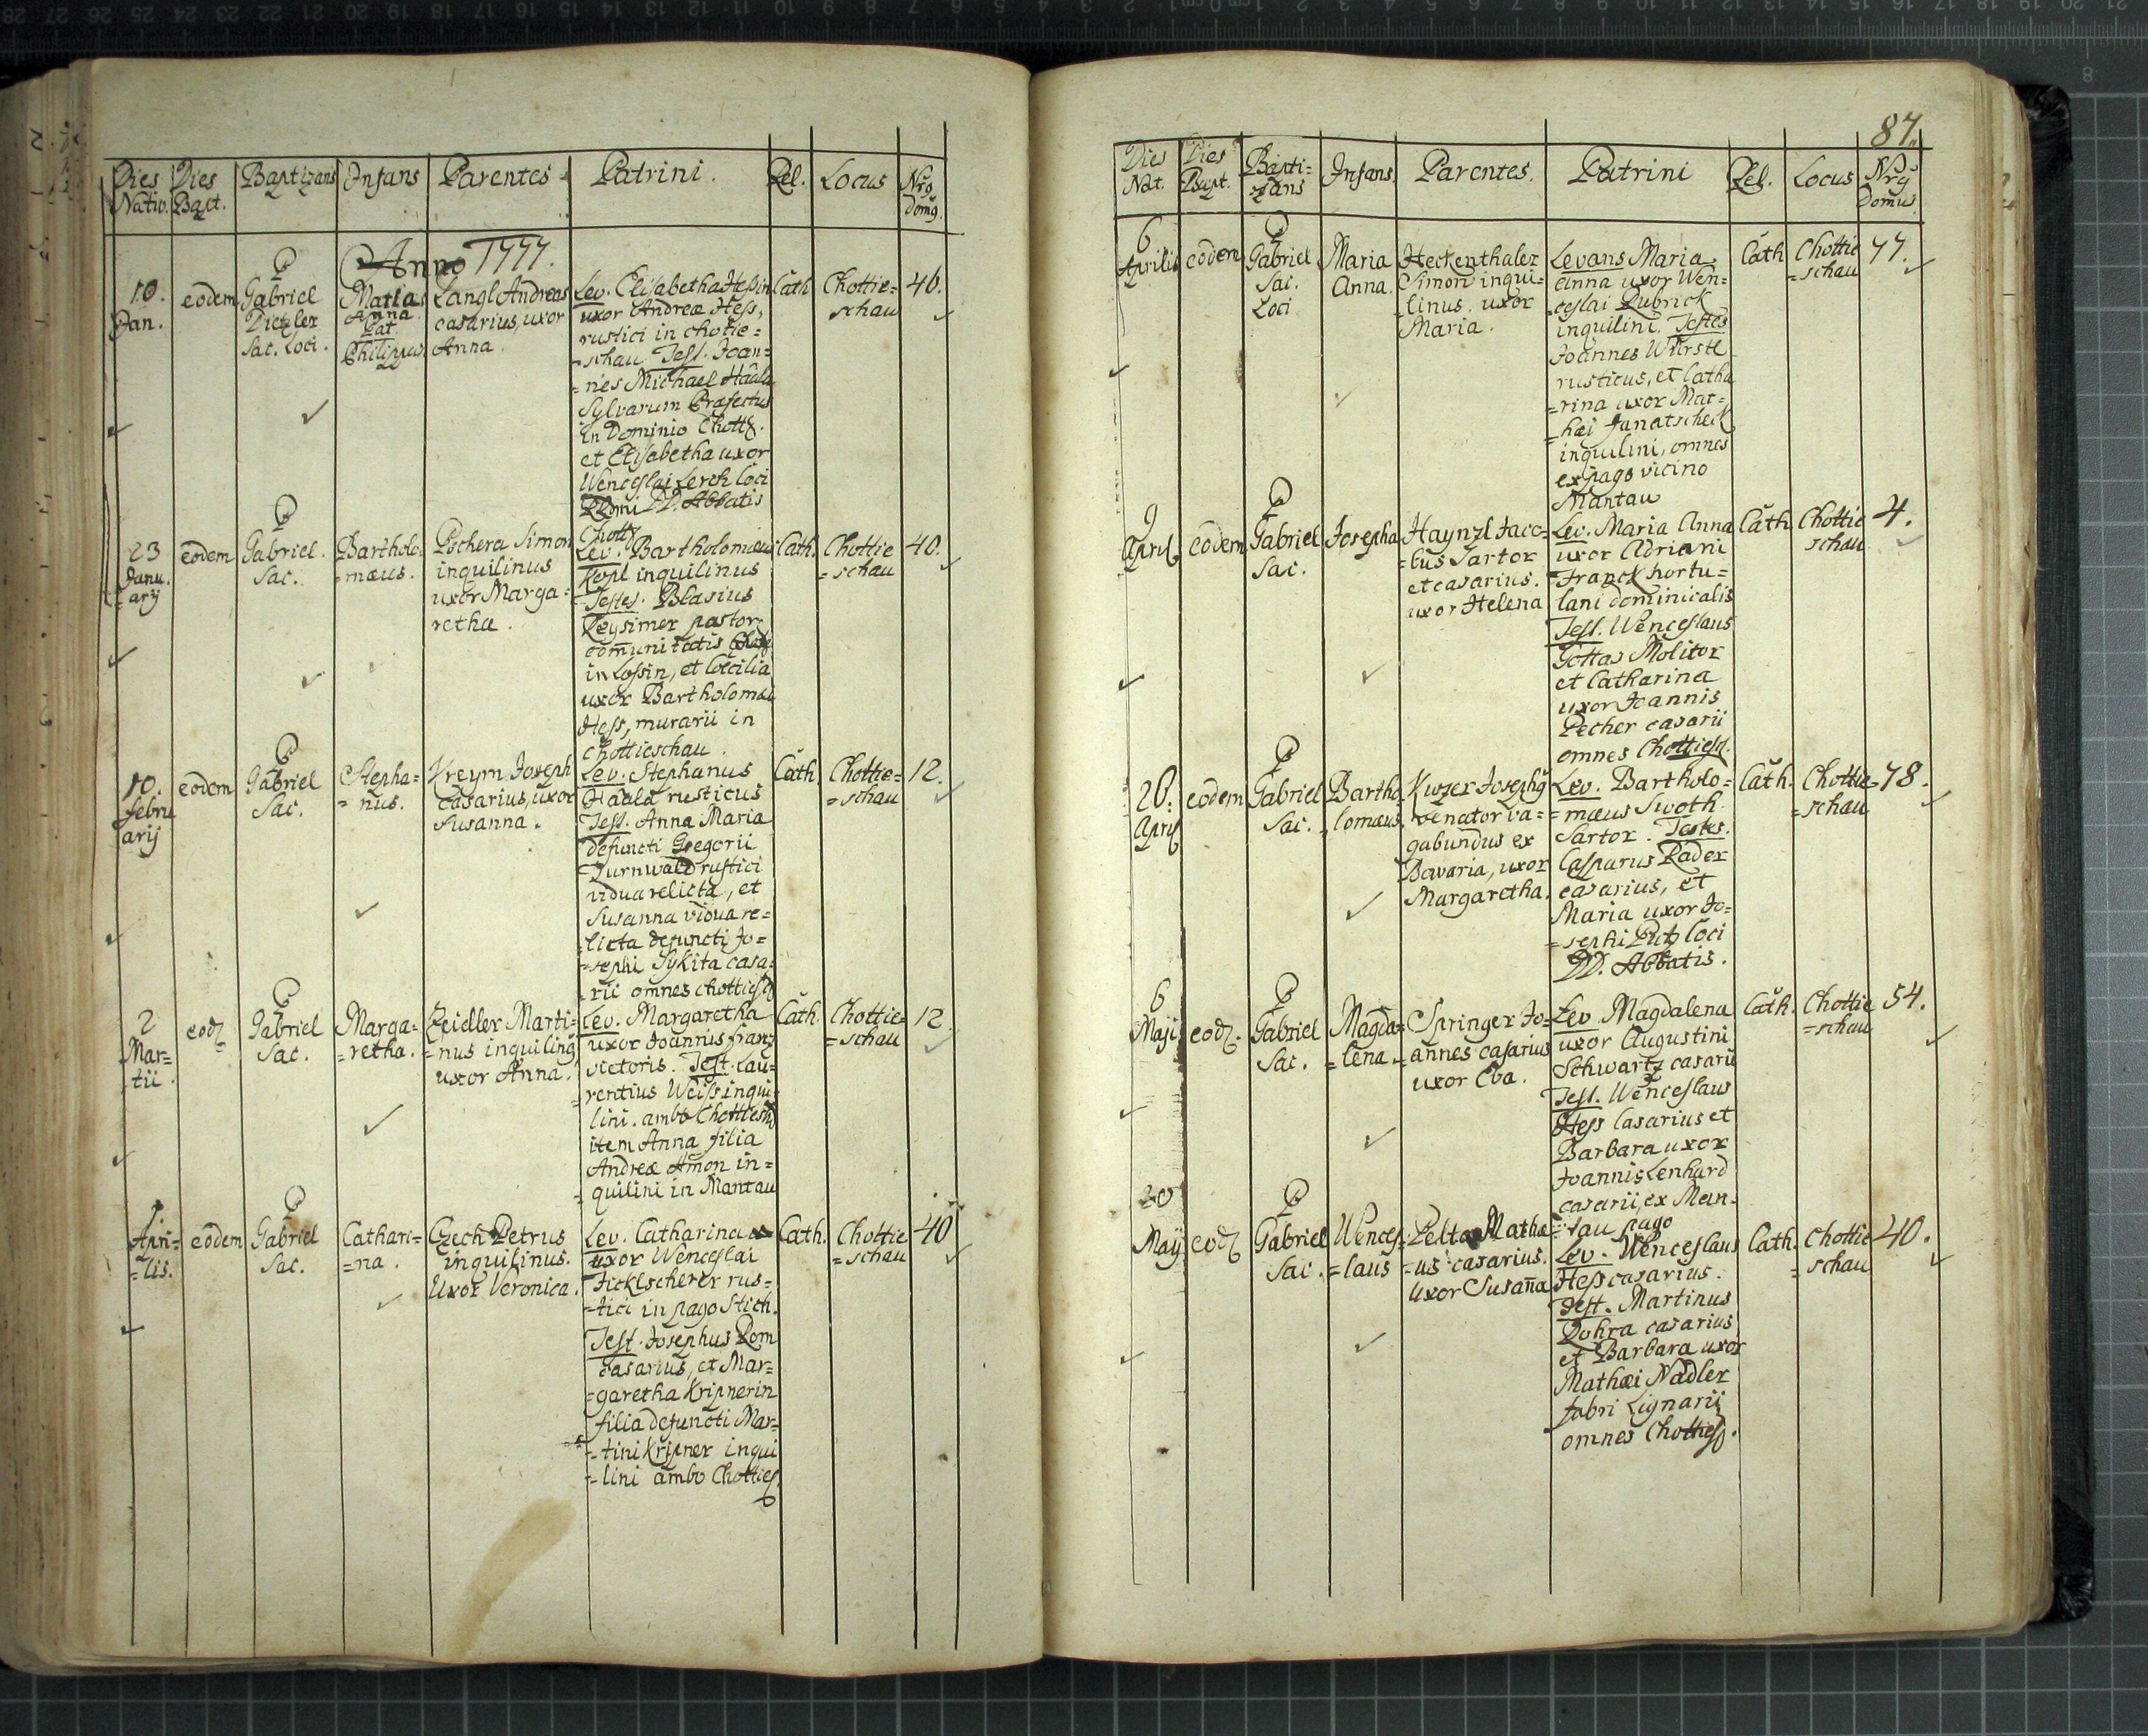 Dies Nativ. Dies Bapt. Baptizans Infans Parentes Patrini. Rel. Locus Nrq Domq.
Anno 1777.
10. Jan.
eodem
P Gabriel
Dictzler
Sac. Loci.
Maria
Anna
Cat
Philippus
Langl Andreas
casarius, uxor
Anna.
Lev. Elisabetha Hessin
uxor Andreæ Hess,
rustici in chotie=
=schau Test. Joan=
=nes Michael Haala
Sylvarum Præfectus
in Dominio Chott
et Elisabetha uxor
Wenceslai Lerch loci
DD. Abbatis
Cath
Chottie=
schau
46.
23
Janu.
arij
eodem
P
Gabriel.
Sac.
Bartholo
=mæus.
Pschera Simon
inquilinus
uxor Marga=
retha.
Lev. Bartholomæus
Kopl inquilinus
Testes. Blasius
Keysimer pastor
comunitatis
in Lossin, et Cœcilia
uxor Bartholomæi
Hess, murarii in
chottieschau.
Cath.
Chottie
=schau
40.
10.
febru
arij
eodem
P
Gabriel
Sac.
Stepha=
=nus.
Kreym Joseph
casarius, uxor
Susanna.
Lev. Stephanus
Haala rusticus
Test. Anna Maria
defuncti Gregorii
Turnwald rustici
vidua relicta, et
Susanna vidua re=
licta defuncti Jo=
=sephi Sykita casa=
rii omnes chottiesch
Cath.
Chottie=
=schau
12.
2
Mar=
tii.
eod
P
Gabriel
Sac.
Marga=
=retha.
Zeidler Marti=
=nus inquilinq
uxor Anna.
Lev. Margaretha
uxor Joannis franz
vietoris. Test. Lau=
rentius Weiss inqui
lini. ambo Chotties
item Anna filia
Andreæ Amon in=
=quilini in Mantau
Cath.
Chottie=
=schau
12.
1
Apri=
=lis.
eodem
P
Gabriel
Sac.
Cathari=
=na.
Czech Petrus
inquilinus.
Uxor Veronica.
Lev. Catharina
uxor Wenceslai
Ficklscherer rus=
=tici in pago Stich.
Test. Josephus Pom
casarius, et Mar=
=garetha Kripnerin
filia defuncti Mar=
=tini Kripner inqui
=lini ambo Chotties
Cath.
Chottie
=schau
40
87.
Dies Nat. Dies Bapt. Bapti=zans Infans. Parentes. Patrini Rel. Locus Nrq Domus
6
Aprilis
eodem
P
Gabriel
Sac.
Loci
Maria
Anna.
Heckenthaler
Simon inqui=
=linus. uxor
Maria.
Levans Maria
anna uxor Wen=
=ceslai Dubrick
inquilini. Testes
Joannes Wurstl
rusticus, et Catha
=rina uxor Mat=
=hæi Janatscheck
inquilini, omnes
ex pago vicino
Mantau
Cath
Chottie
=schau
77.
9
April
eodem
P
Gabriel
Sac.
Josepha
Haynzl Jaco=
=bus Sartor
et casarius.
uxor Helena
Lev. Maria Anna
uxor Adriani
Franck hortu=
lani dominicalis
Test. Wenceslaus
Gottas Molitor
et Catharina
uxor Joannis
Pecher casarii
omnes Chottiesch.
Cath
Chottie
schau
4.
20.
April
eodem
P
Gabriel
Sac.
Bartho
lomæus.
Kurzer Josephq
venator va=
gabundus ex
Bavaria, uxor
Margaretha.
Lev. Bartholo=
=mæus Swoth
Sartor. Testes.
Casparus Rader
casarius, et
Maria uxor Jo=
=sephi Putz loci
DD. Abbatis.
Cath.
Chottie
=schau
78.
6
Maji
eod.
P
Gabriel
Sac.
Magda=
=lena.
Springer Jo=
=annes casarius
uxor Eva.
Lev. Magdalena
uxor Augustini
Schwartz casarii
Test. Wenceslaus
Hess casarius et
Barbara uxor
Joannis Lenhard
casarii, ex Man=
=tau pago
Cath.
Chottie
=schau
54.
20
Maÿ
eod
P
Gabriel
Sac.
Wences=
=laus
Mathæ
=us casarius.
uxor Susaña
Lev. Wenceslaus
Hess casarius.
Test. Martinus
Dohra casarius
et Barbara uxor
Mathæi Nadler
fabri Lignarii
omnes Chottiesch.
Cath.
Chottie
=schau
40.